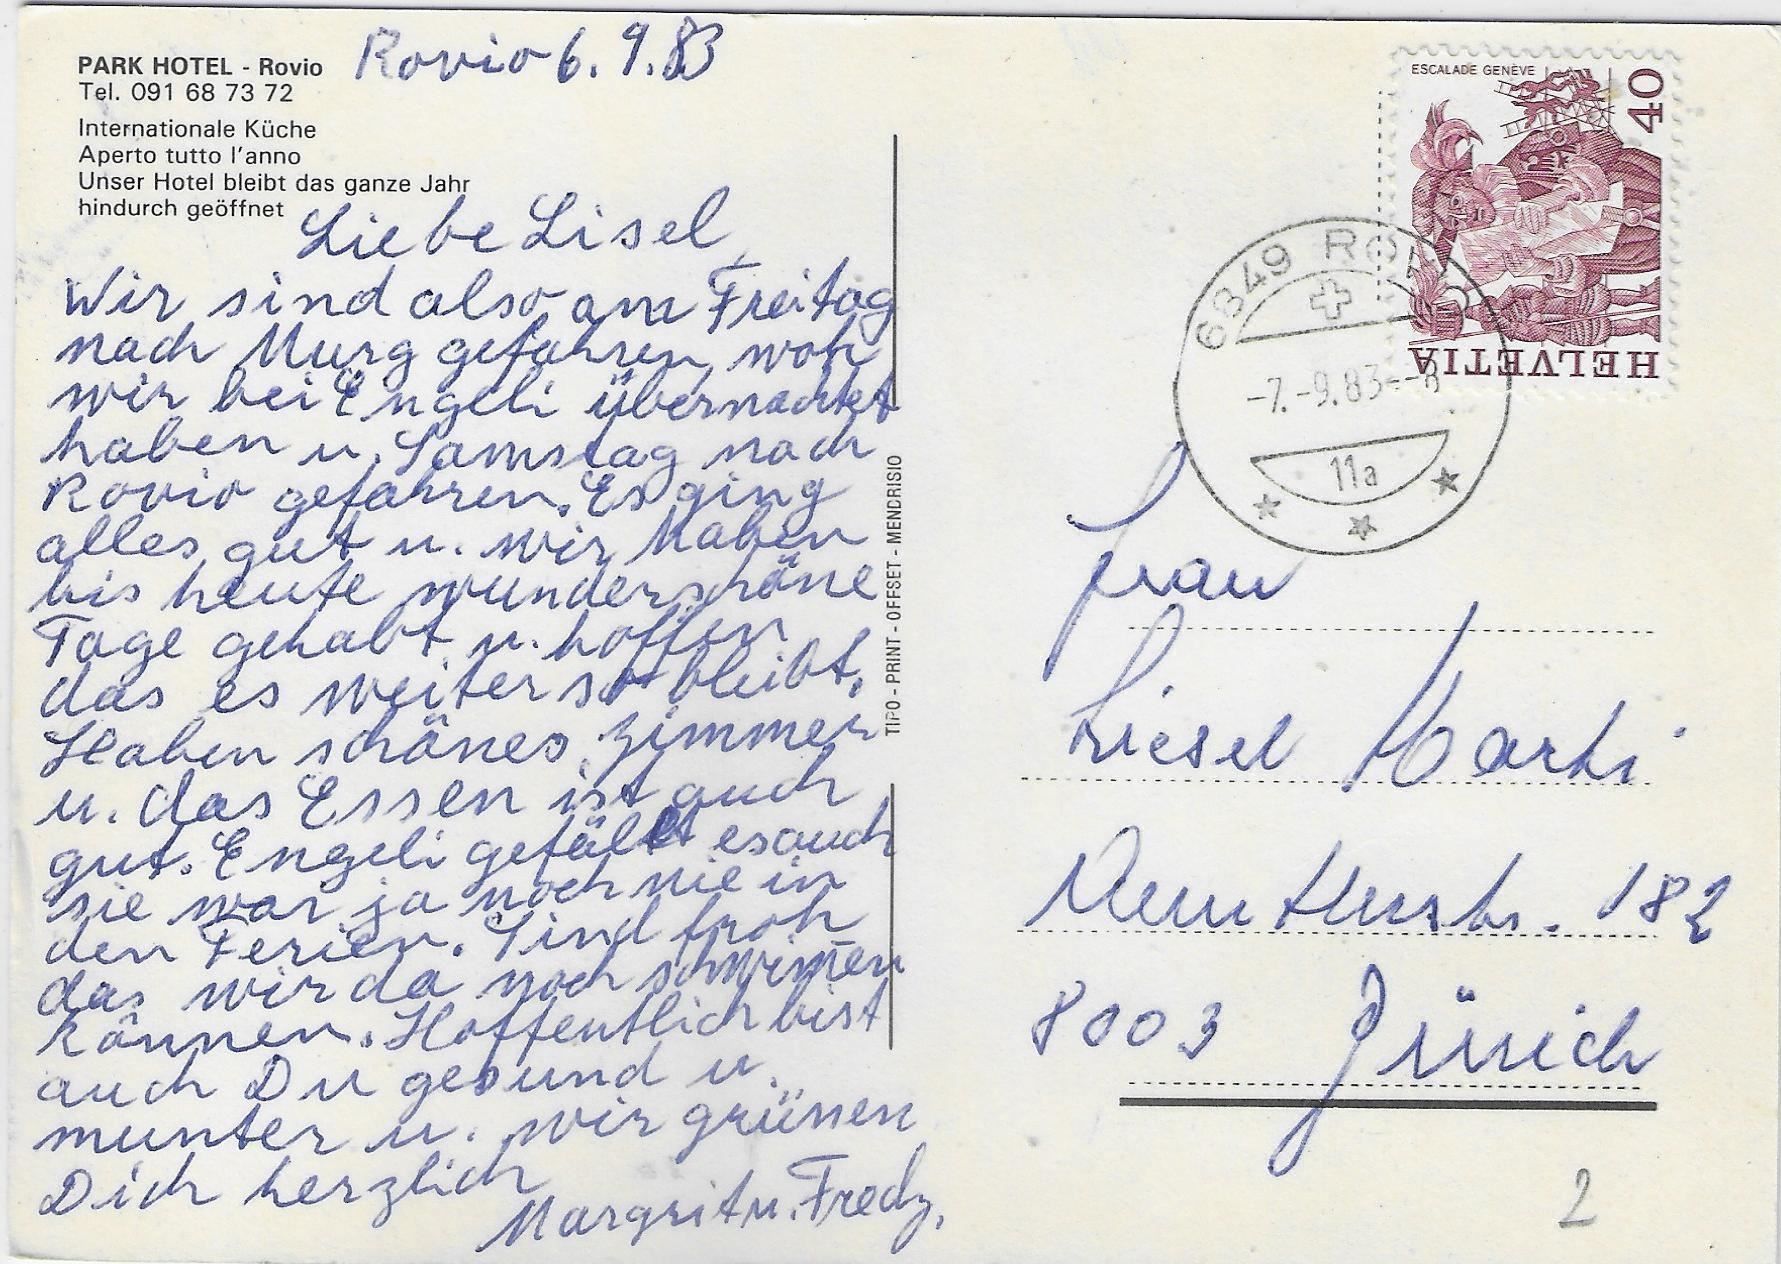 PARK HOTEL - Rovio
Tel. 091 68 73 72
Internationale Küche
Aperto tutto l'anno
Unser Hotel bleibt das ganze Jahr
hindurch geöffnet
Rovio 6. 9. 83
Liebe Lisel,
Wir sind also am Freitag
nach Murg gefahren, woh
wir bei Engeli übernachtet
haben u. Samstag nach
Rovio gefahren. Es ging
alles gut u. wir haben
bis heute wunderschöne
Tage gehabt u. hoffen
das es weiter so bleibt.
Haben schönes Zimmer
u. das Essen ist auch
gut. Engeli gefält es auch
sie war ja noch nie in
den Ferien. Sind froh
das wir da noch schwim̄en
können. Hoffentlich bist
auch Du gesund u.
munter u. wir grüssen
Dich herzlich
Margrit u. Fredy.
TIPO - PRINT - OFFSET - MENDRISIO
ESCALADE GENÈVE
40
HELVETIA
6849 ROVIO
-7.-9.83--
11a
Frau
Liesel Marti
182
8003 Zürich
2